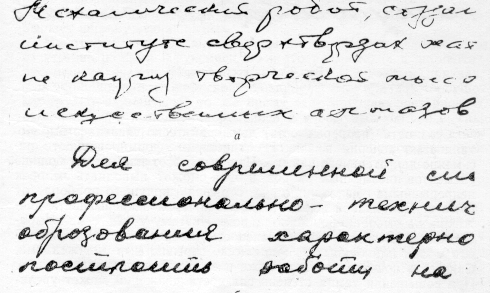 Механический робот, создан
институте сверхтвердах мат
не научну творческой мысл
искусственных алмазов
а
Для современной си
профессионально-технич
образования характерно
работы на